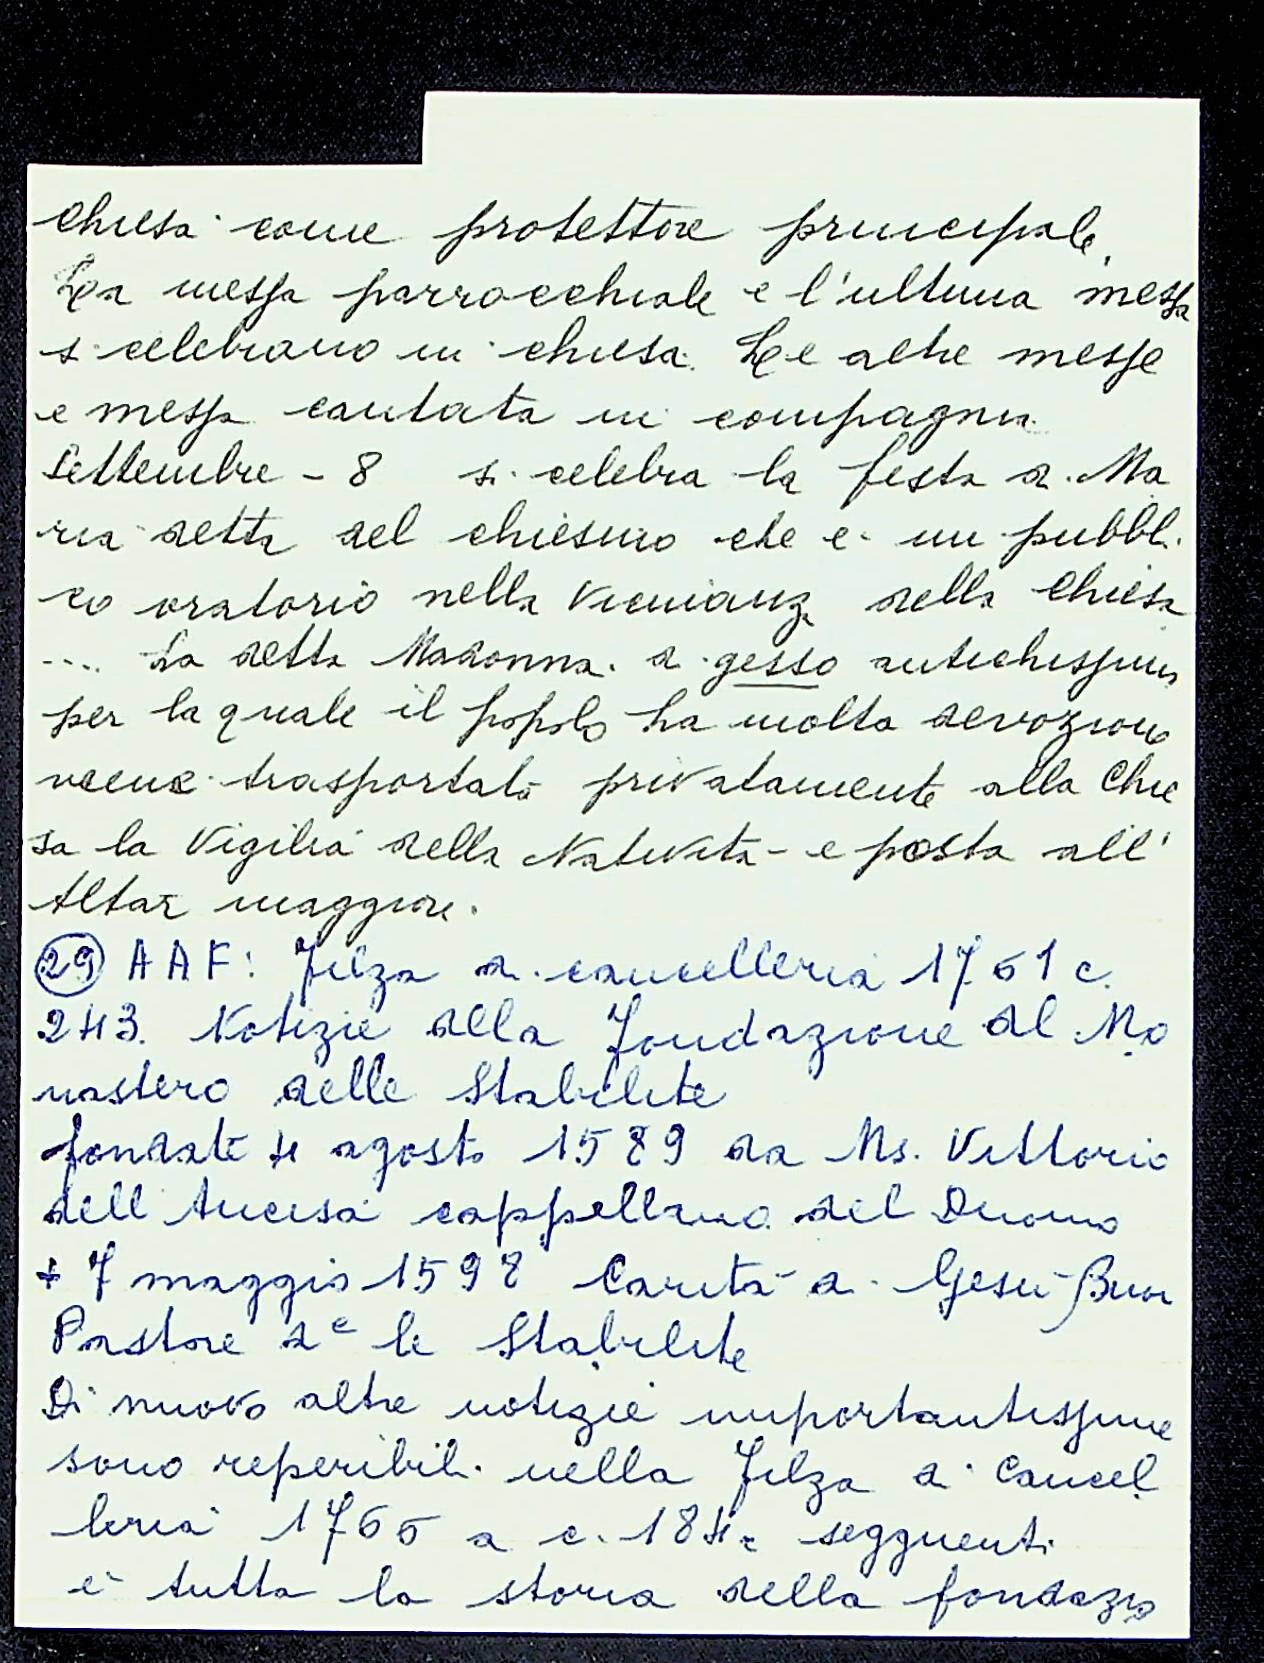 Chiesa come protettore principale.
La messa parrocchiale e l'ultima messa
si celebrano in chiesa. Le altre messe
e messa cantata in compagnia.
Settembre - 8 si celebra la festa di Ma
ria detta del chiesino che è un pubbli
co oratorio nella vicinanza della Chiesa
.... La detta Madonna di gesso antichissima
per la quale il popolo ha molta devozione
viene trasportata privatamente alla Chie
sa la Vigilia della Natività e posta all'
Altar maggiore.
29 AAF: Filza di cancelleria 1761 c.
243. Notizie della Fondazione del Mo
nastero delle Stabilite
fondate 4 agosto 1589 da Ms. Vittorio
dell'Ancisa cappellano del Duomo
+ 7 maggio 1598 Carità di Gesù Buon
Pastore de le Stabilite
Di nuovo altre notizie importantissime
sono reperibili nella Filza di Cancel
leria 1766 a c. 184 e segguenti
è tutta la storia della fondazio